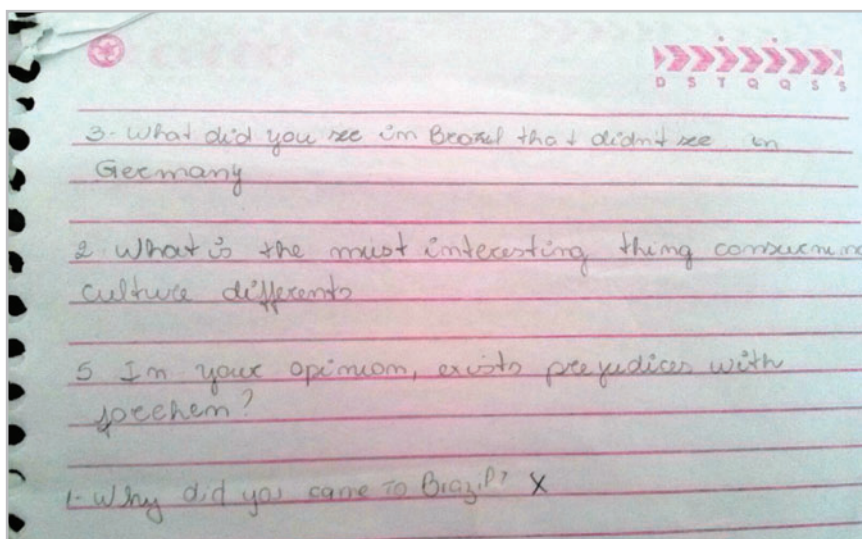 D S T Q Q S S
3- What did you see in Brazil that didn't see in
Germany
2 What is the most interesting thing
culture differents
5 In your opinion, exists prejudices with
1- Why did you came to Brazil? X